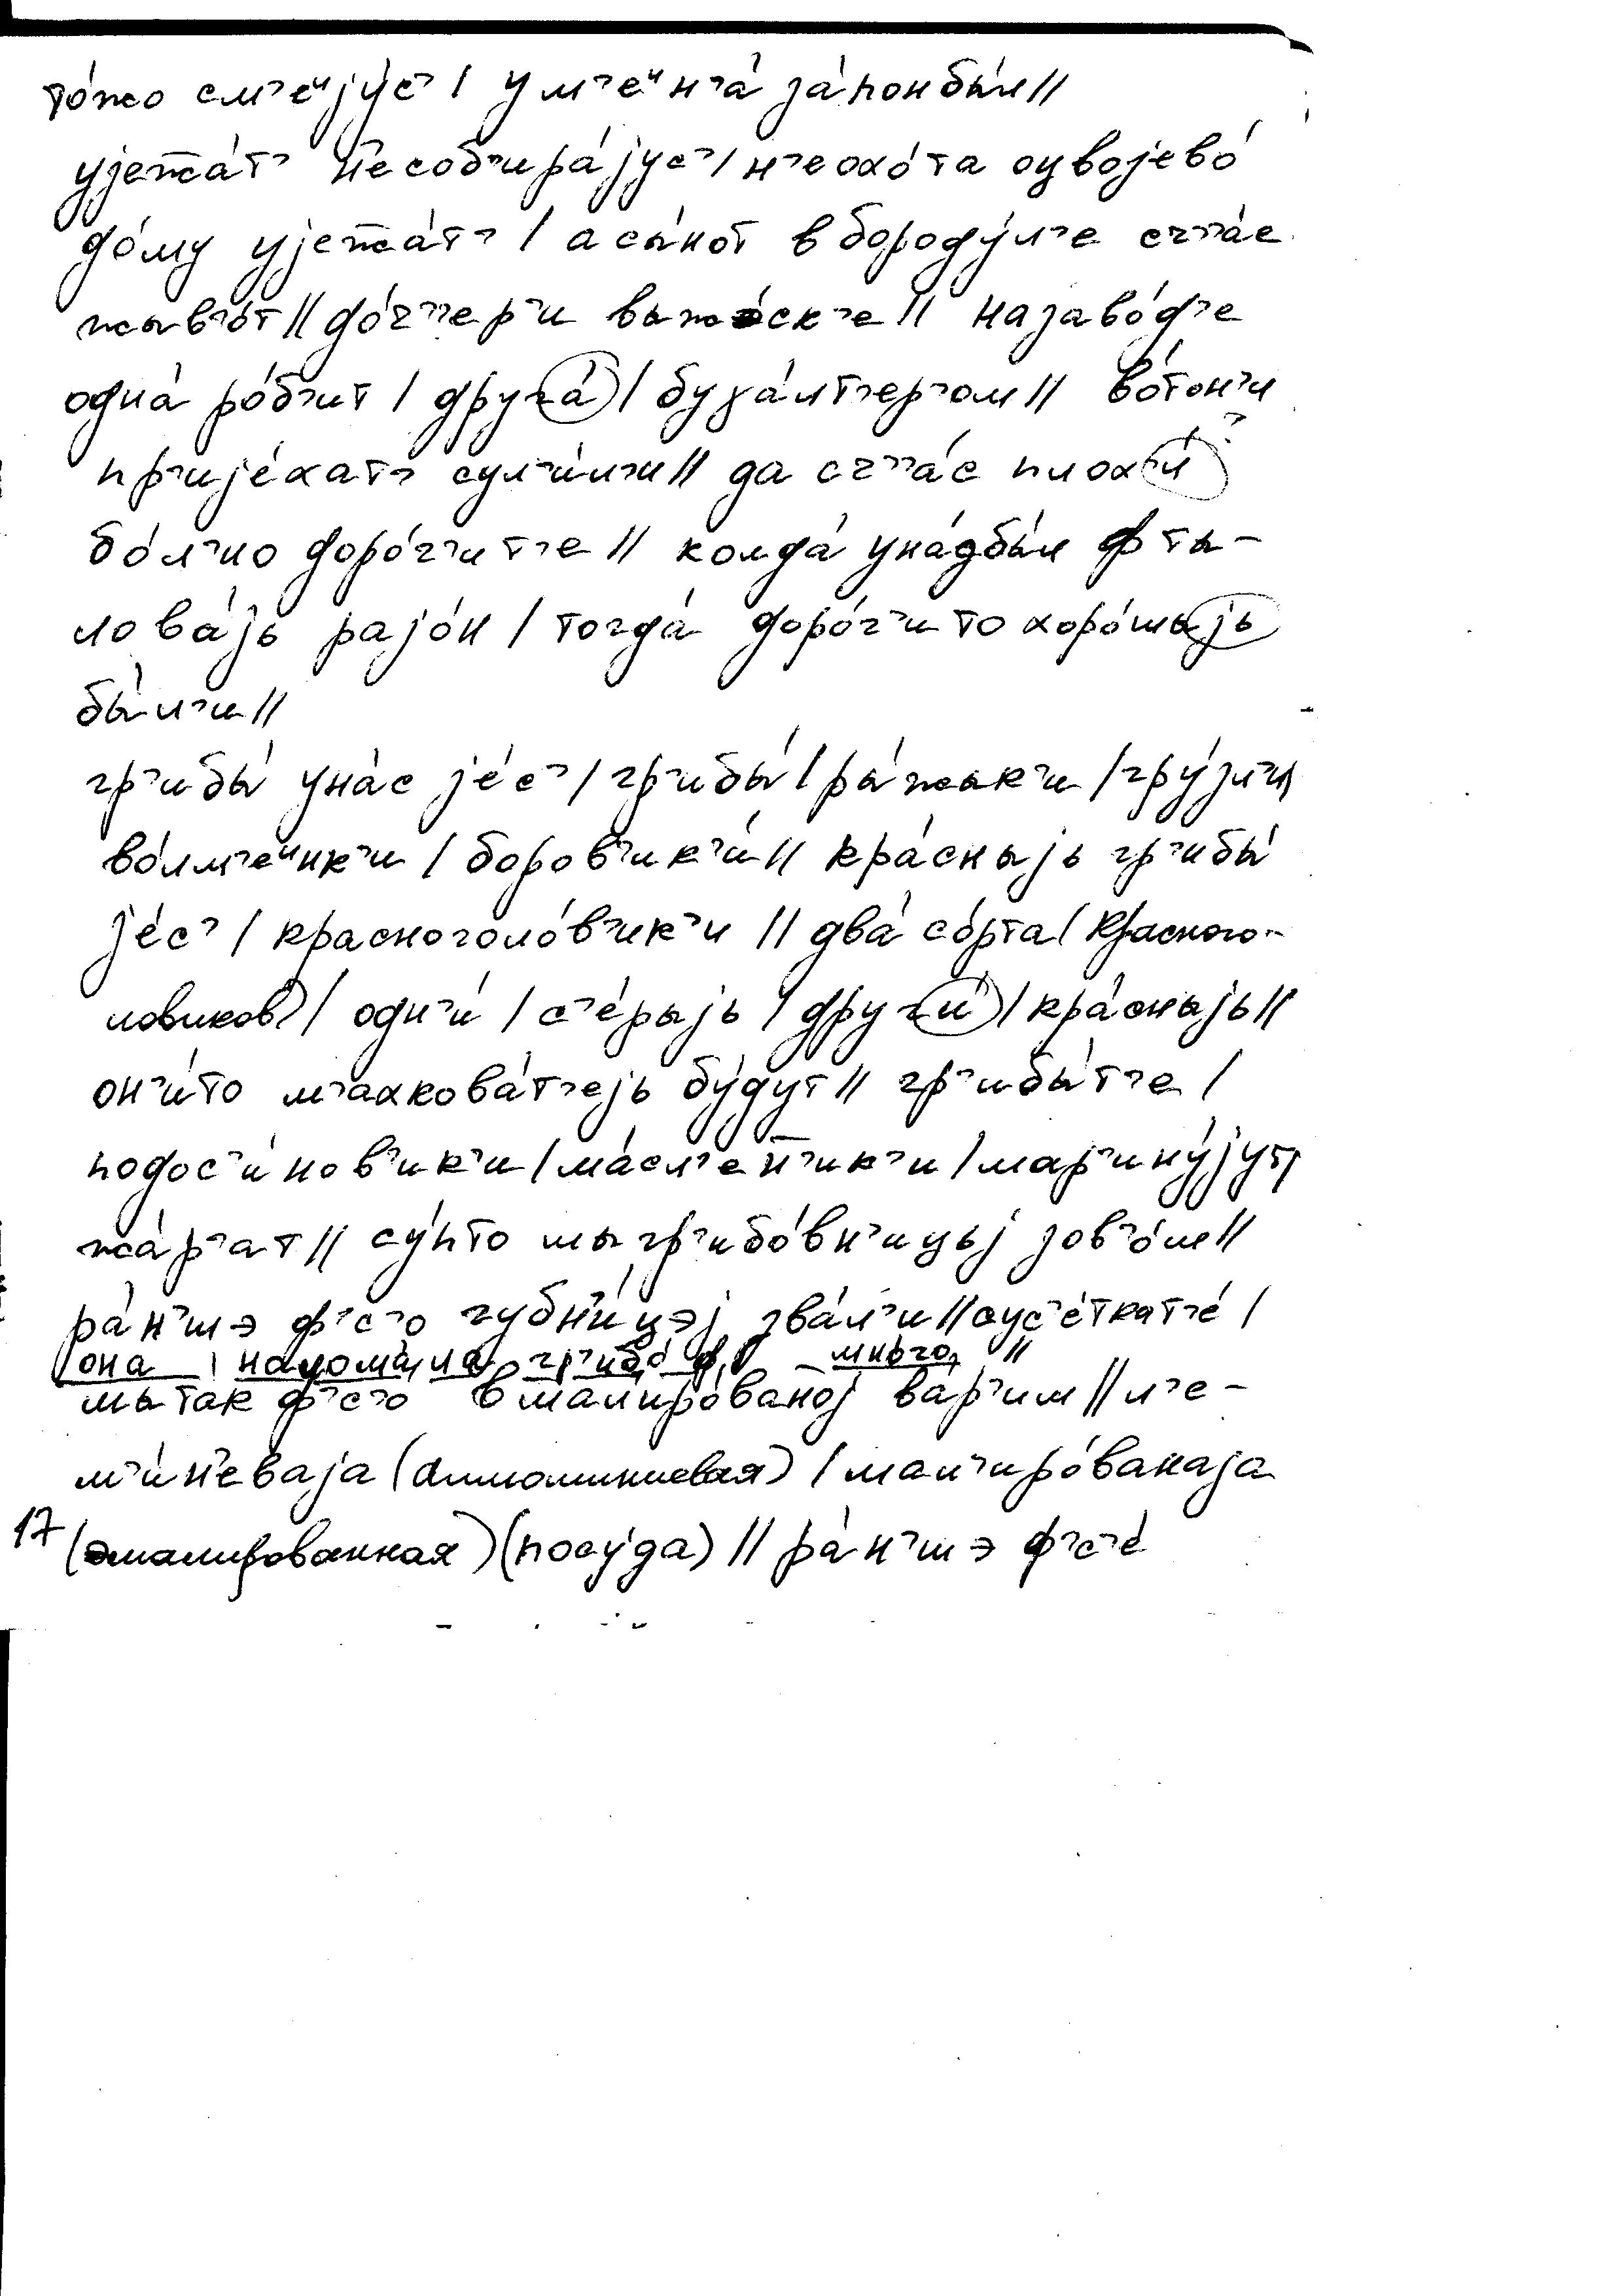 то́жо см'еиjу́с' / ум'еин'а́ за́пон бы́л //
уjеж̅а́т' н'есоб'ира́jус' / н'еохо́та оцвоjево́
до́му уjеж̅а́т' / а сы́нот в бороду́л'е сч'а́с
жыв'о́т // до́ч'ер'и выжо́ск'е // на заво́д'е
одна́ ро́б'ит / друга́ / буɣа́лт'ер'ом // во́тон'и
пр'иjе́хат' сул'и́л'и // да сч'а́с плох'и́
бо́л'но доро́г'ит'е // колда́ уна́дбы́л ф ты-
лова́jь раjо́н / тогда́ доро́г'ито хоро́шыjь
бы́л'и //
гр'ибы́ уна́с jе́с' / гр'ибы́ / ры́жык'и / гру́зл'и /
во́лм'еинк'и / боров'ик'и́ // кра́сныjь гр'ибы́
jе́с' / красноголо́в'ик'и // два́ со́рта (красного-
ловиков) / одн'и́ / с'е́рыjь / друг'и́ / кра́сныjь //
он'и́то м'ахкова́т'еjь бу́дут // гр'ибы́т'е /
подос'и́нов'ик'и / ма́сл'ен̅'ик'и / мар'ину́jут /
жа́р'ат // су́пто мы гр'ибо́вн'ицыj зов'о́м //
ра́н'шэ ф'с'о губн'и́цэj зва́л'и // сус'е́ткат'е́ /
она / наломи́ла гр'ибо́ф много //
мы так ф'с'о в малиро́ваноj вар'им // л'е-
м'и́н'еваjа (алюминиевая) / мал'иро́ванаjа
17 (эмалированная) (посу́да) // ра́н'шэ ф'с'е́